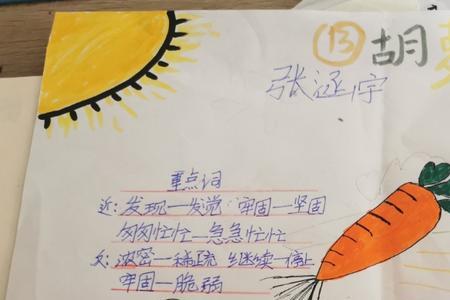 13 胡
张涵宇
重点词
近:发现—发觉 牢固—坚固
匆匆忙忙—急急忙忙
反:浓密—稀疏 继续—停止
牢固—脆弱